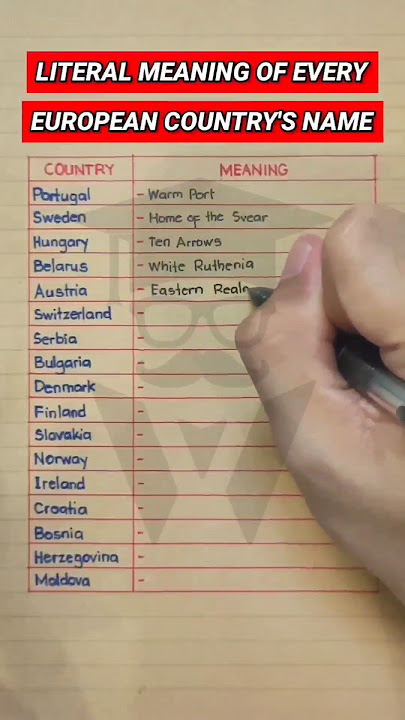 LITERAL MEANING OF EVERY
EUROPEAN COUNTRY'S NAME
COUNTRY MEANING
Portugal - Warm Port
Sweden - Home of the Svear
Hungary - Ten Arrows
Belarus - White Ruthenia
Austria - Eastern Realm
Switzerland -
Serbia -
Bulgaria -
Denmark -
Finland -
Slovakia -
Norway -
Ireland -
Croatia -
Bosnia -
Herzegovina -
Moldova -